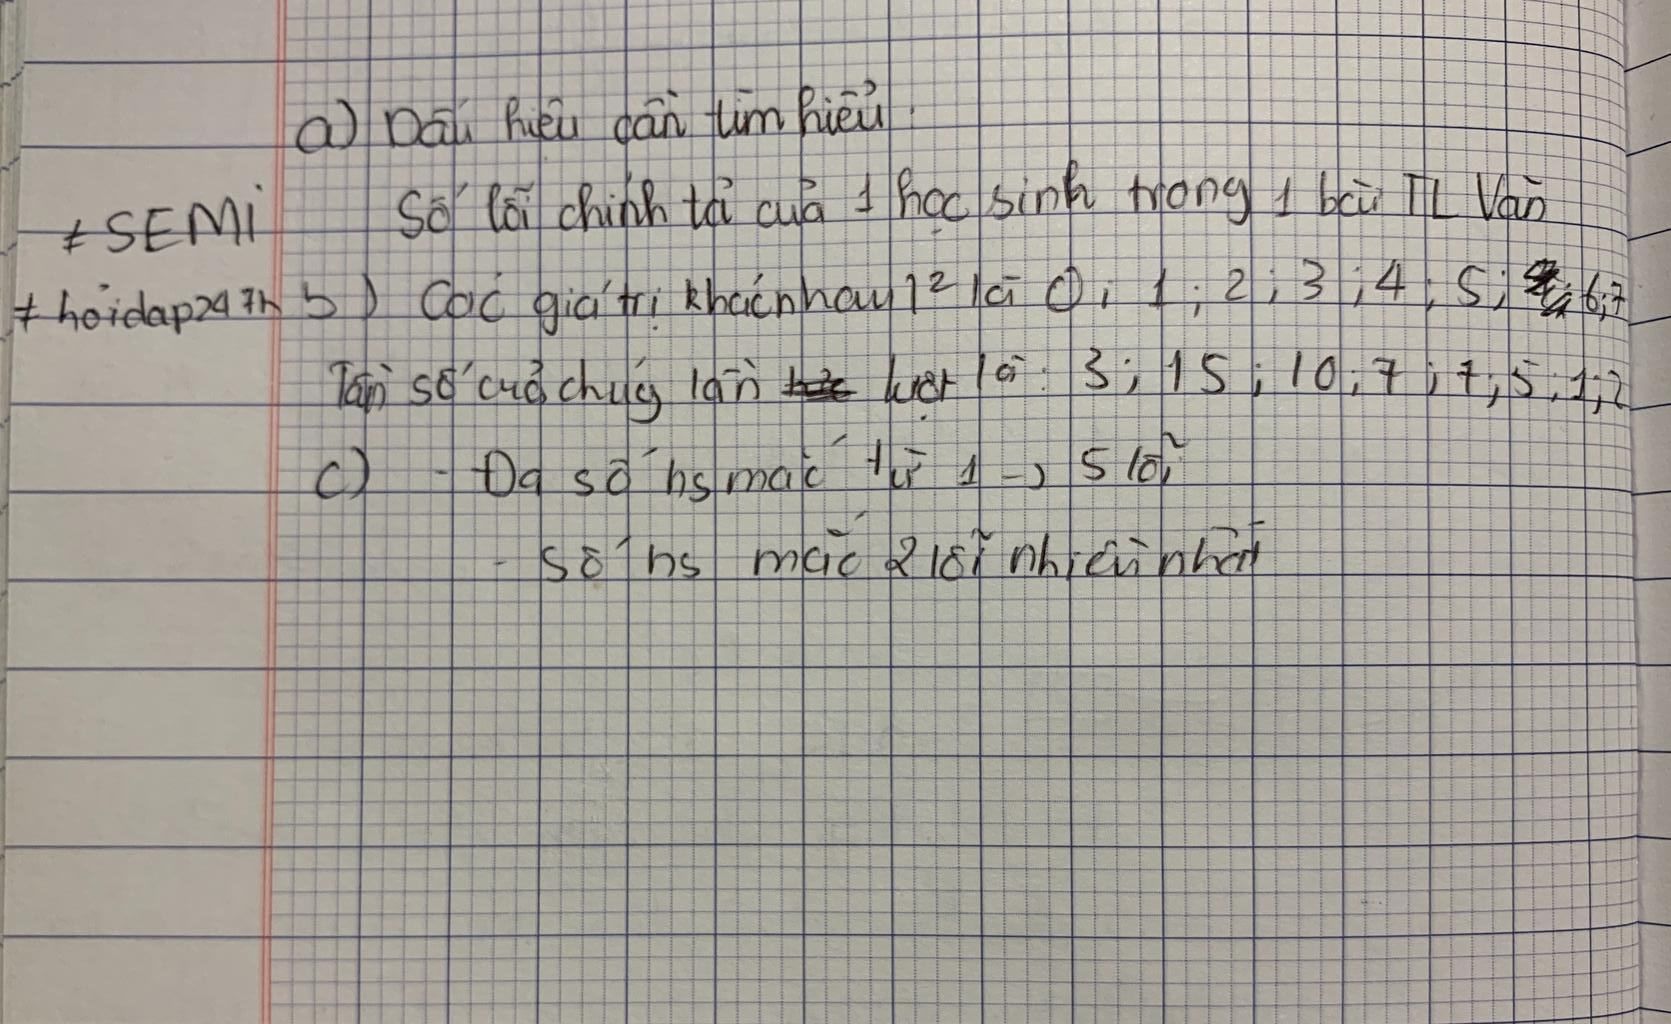 a) Dấu hiệu cần tìm hiểu.
Số lỗi chính tả của 1 học sinh trong 1 bài TL Văn
≠ SEMI
≠ hoidap247h
b) Các giá trị khác nhau là 0; 1; 2; 3; 4; 5; 6; 7
Tần số của chúng lần lượt là: 3; 15; 10; 7; 7; 5; 1; 2
c) - Đa số hs mắc từ 1 -> 5 lỗi
- số hs mắc 2 lỗi nhiều nhất